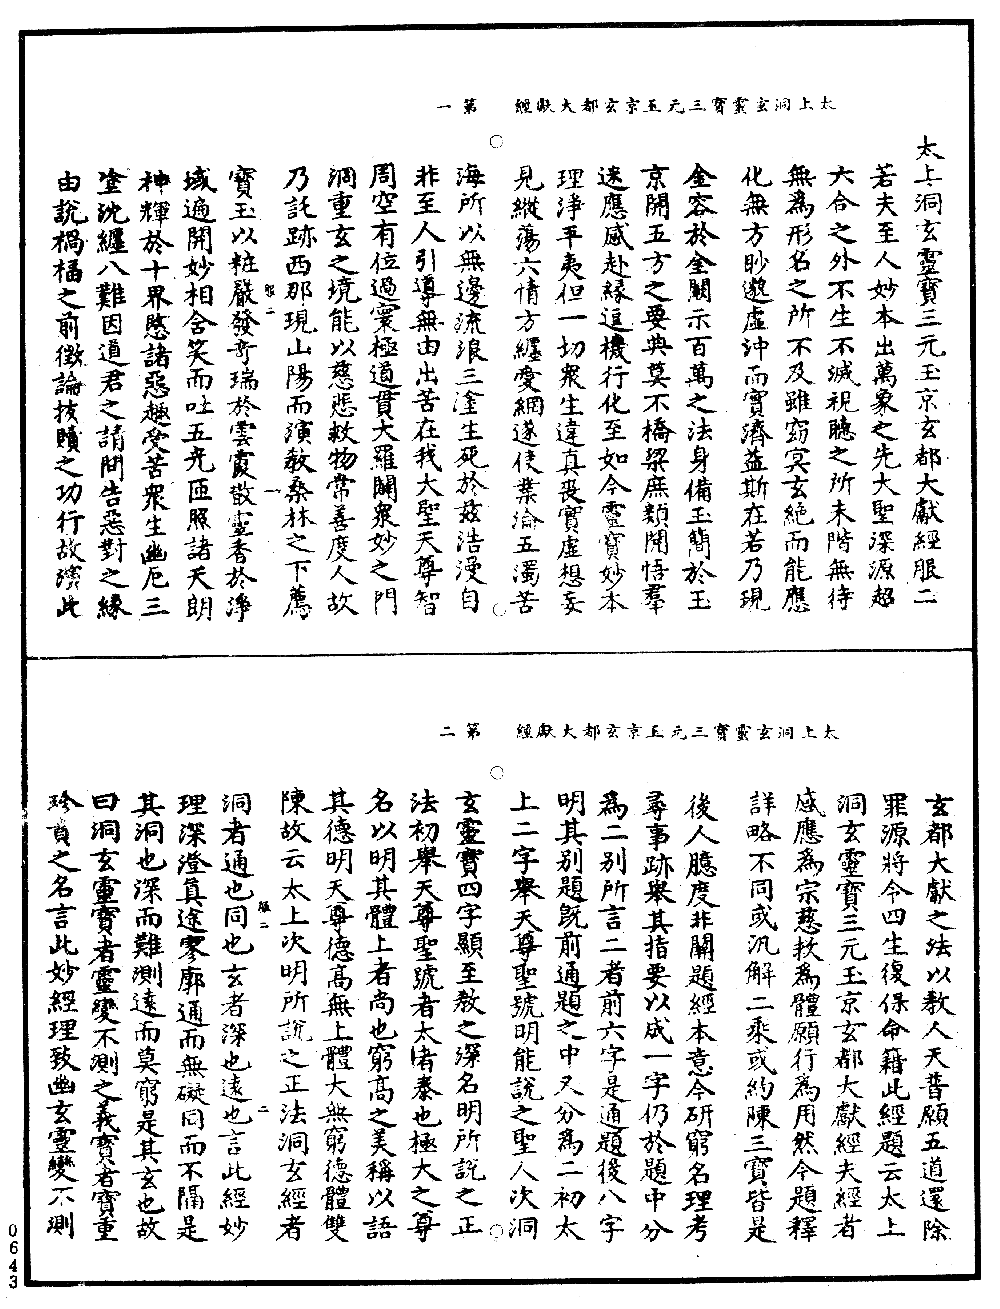 太上洞玄靈寶三元玉京玄都大獻經　第一
太上洞玄靈寶三元玉京玄都大獻經服二
若夫至人妙本出萬象之先大聖深源超
六合之外不生不滅視聽之所未階無待
無為形名之所不及雖窈冥玄絕而能應
化無方眇邈虛沖而實濟益斯在若乃現
金容於金闕示百萬之法身備玉簡於玉
京開五方之要典莫不橋梁庶類開悟羣
迷應感赴緣逗機行化至如今靈寶妙本
理淨平夷但一切衆生違真喪實虛想妄
見縱蕩六情方纏愛網遂使業淪五濁苦
海所以無邊流浪三塗生死於茲浩漫自
非至人引導無由出苦在我大聖天尊智
周空有位過寰極道貫大羅闢衆妙之門
洞重玄之境能以慈悲救物常善度人故
乃託跡西那現山陽而演教桑林之下薦
服二　一
寶玉以粧嚴發奇瑞於雲霞散靈香於淨
域遍開妙相含笑而吐五光匝照諸天朗
神輝於十界愍諸惡趣受苦衆生幽厄三
塗沈纏八難因道君之請問告惡對之緣
由說楇槁之前徵論拔贖之功行故演此
太上洞玄靈寶三元玉京玄都大獻經　第二
玄都大獻之法以教人天普願五道還除
罪源將令四生復保命籍此經題云太上
洞玄靈寶三元玉京玄都大獻經夫經者
感應為宗慈救為體願行為用然今題釋
詳略不同或汎解二乘或約陳三寶皆是
後人臆度非關題經本意今研窮名理考
尋事跡舉其指要以成一字仍於題中分
為二別所言二者前六字是通題後八字
明其別題旣前通題之中又分為二初太
上二字舉天尊聖號明能說之聖人次洞
玄靈寶四字顯至教之深名明所說之正
法初舉天尊聖號者太者泰也極大之尊
名以明其體上者尚也窮高之美稱以語
其德明天尊德高無上體大無窮德體雙
陳故云太上次明所說之正法洞玄經者
服二　二
洞者通也同也玄者深也遠也言此經妙
理深澄真途寥廓通而無礙同而不隔是
其洞也深而難測遠而莫窮是其玄也故
曰洞玄靈寶者靈變不測之義寶者寶重
珍貴之名言此妙經理致幽玄靈變不測
0643